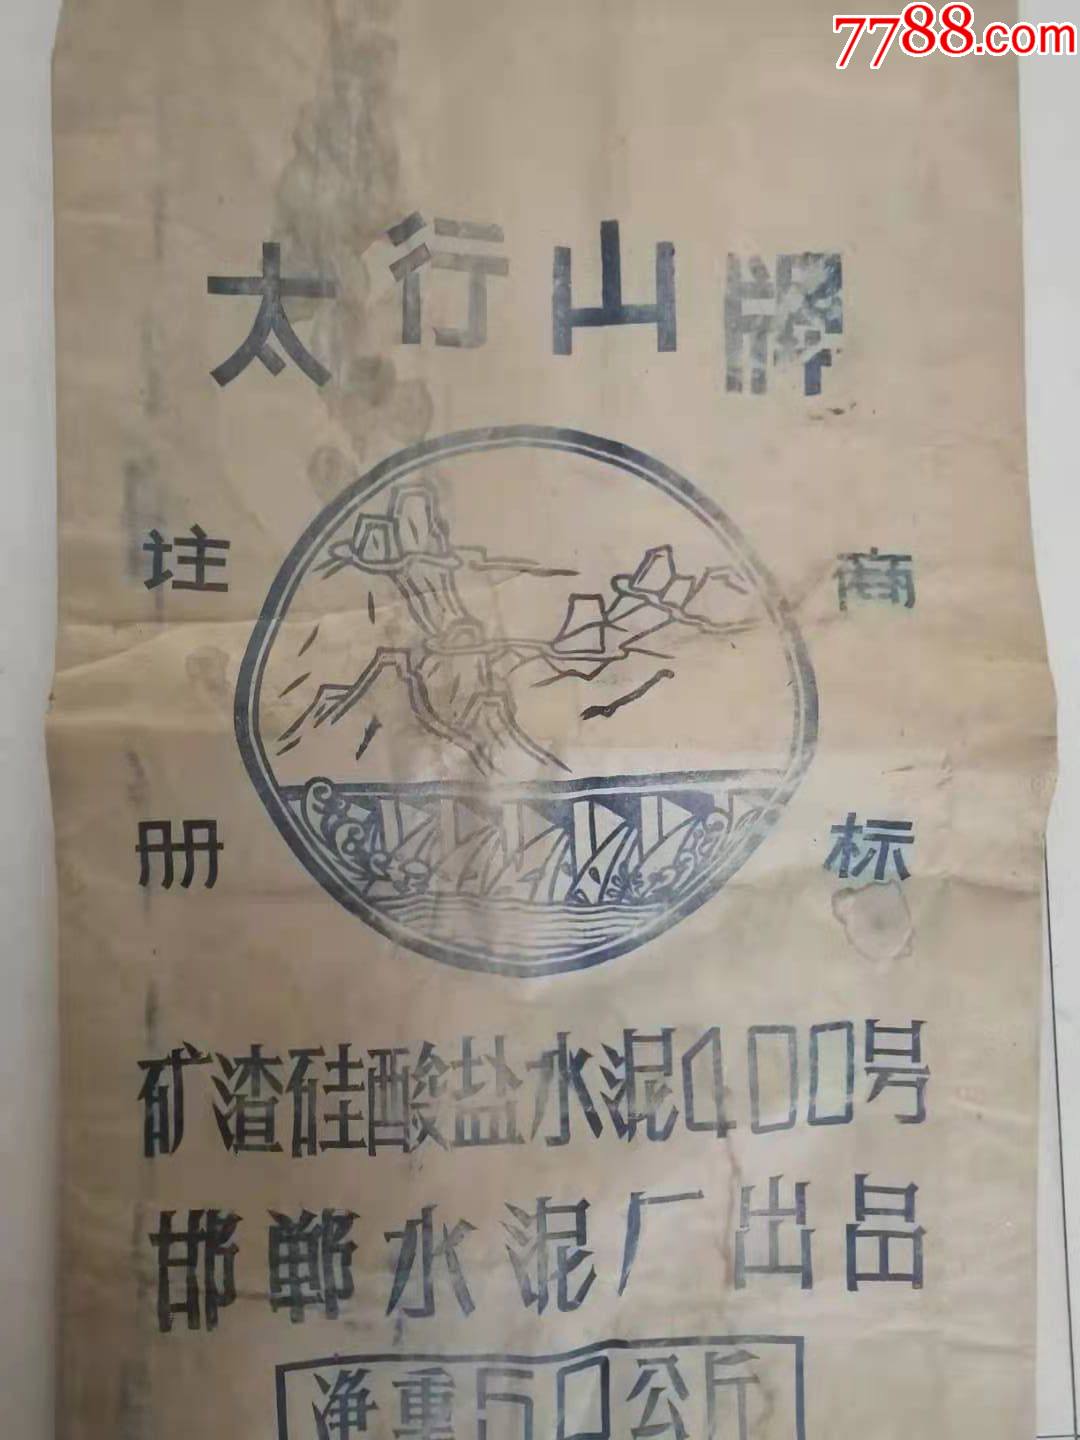 7788.com
太行山牌
注册
商标
矿渣硅酸盐水泥400号
邯郸水泥厂出品
净重50公斤